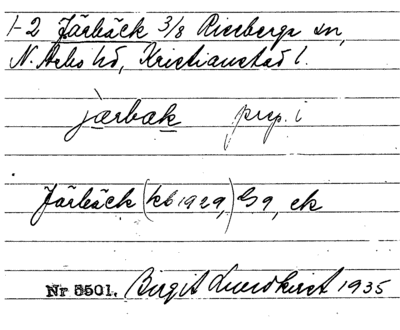 1-2 Järbäck 3/8 Riseberga sn,
N. Åsbo hd, Kristianstad l.
järbak prep. i
Järbäck (kb 1929,) G9, ek
Nr 5501. Birgit Lundkvist 1935